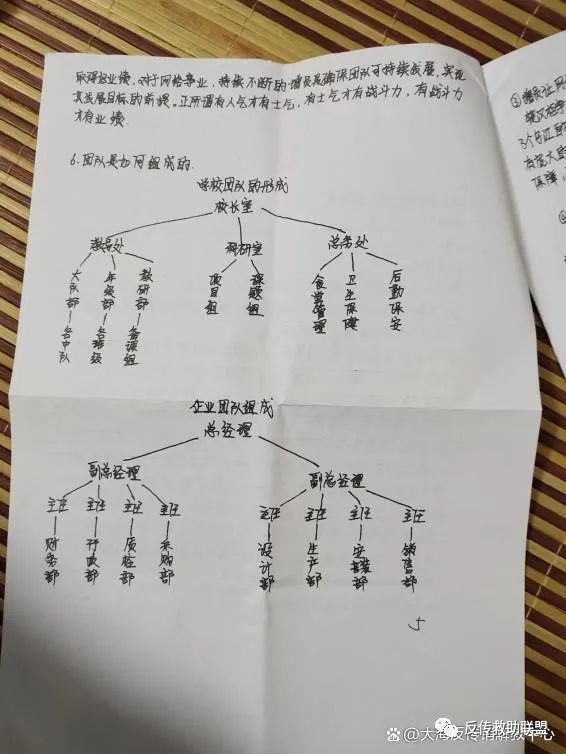 取得好业绩。对于网络事业，持续不断的增员是确保团队可持续发展，实现
其发展目标的前提。正所谓有人气才有士气，有士气才有战斗力，有战斗力
才有业绩
6.团队是如何组成的.
学校团队的形成
校长室
教导处 科研室 总务处
大队部—各中队
年级部—各班级
教研部—备课组
项目组
课题组
食堂管理
卫生保健
后勤保安
企业团队组成
总经理
副总经理 副总经理
主任 主任 主任 主任 主任 主任 主任 主任
财务部
行政部
质检部
采购部
设计部
生产部
安装部
销售部
5
保障
大海反传销解救中心
反传救助联盟